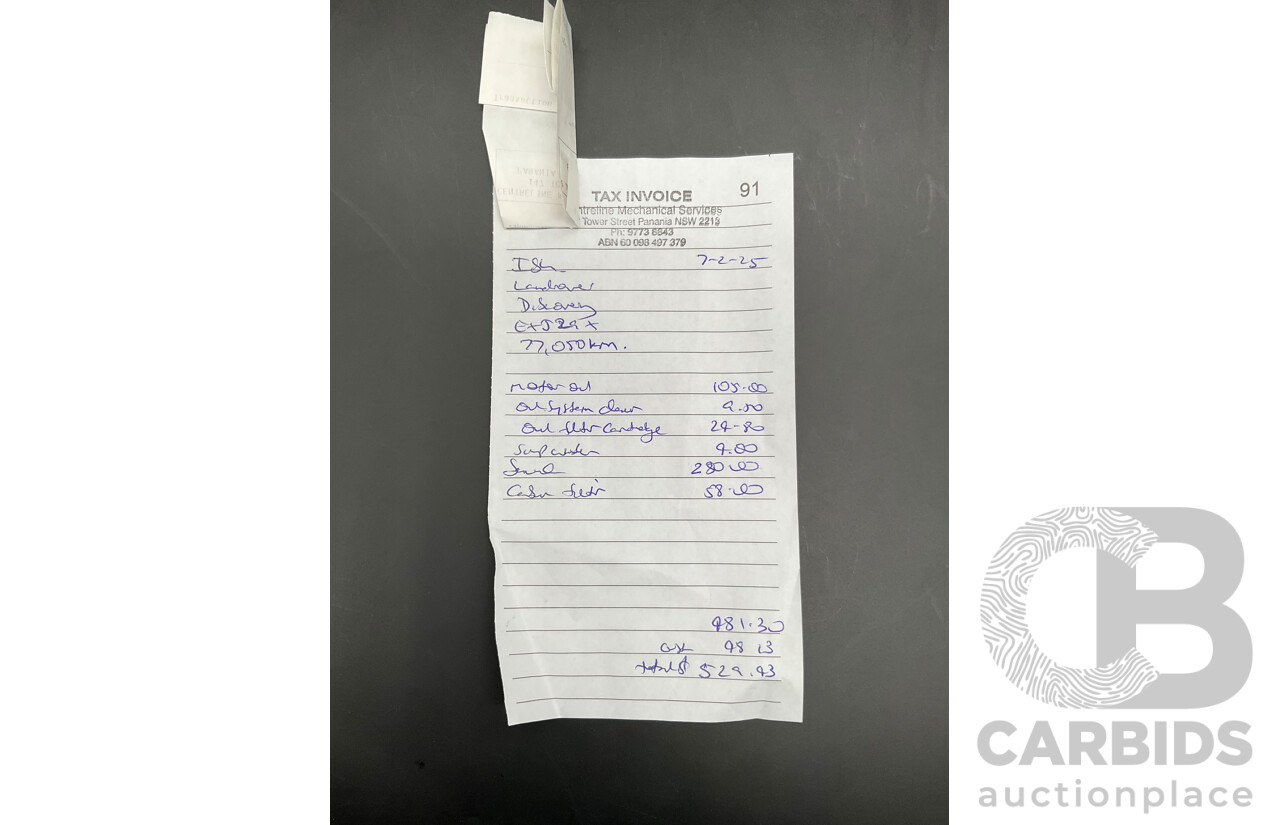 91
TAX INVOICE
ntreline Mechanical Services
Tower Street Panania NSW 2213
Ph: 9773 8843
ABN 60 098 497 379
7-2-25
Landrover
Discovery
77,050km.
motor oil 105.00
Oil System clean 9.50
Oil filtr Cartridge 24-80
Sump washer 4.00
280.00
Cabin filtr 58.00
481.30
GST 48 13
total $ 529.43
CB
CARBIDS
auctionplace